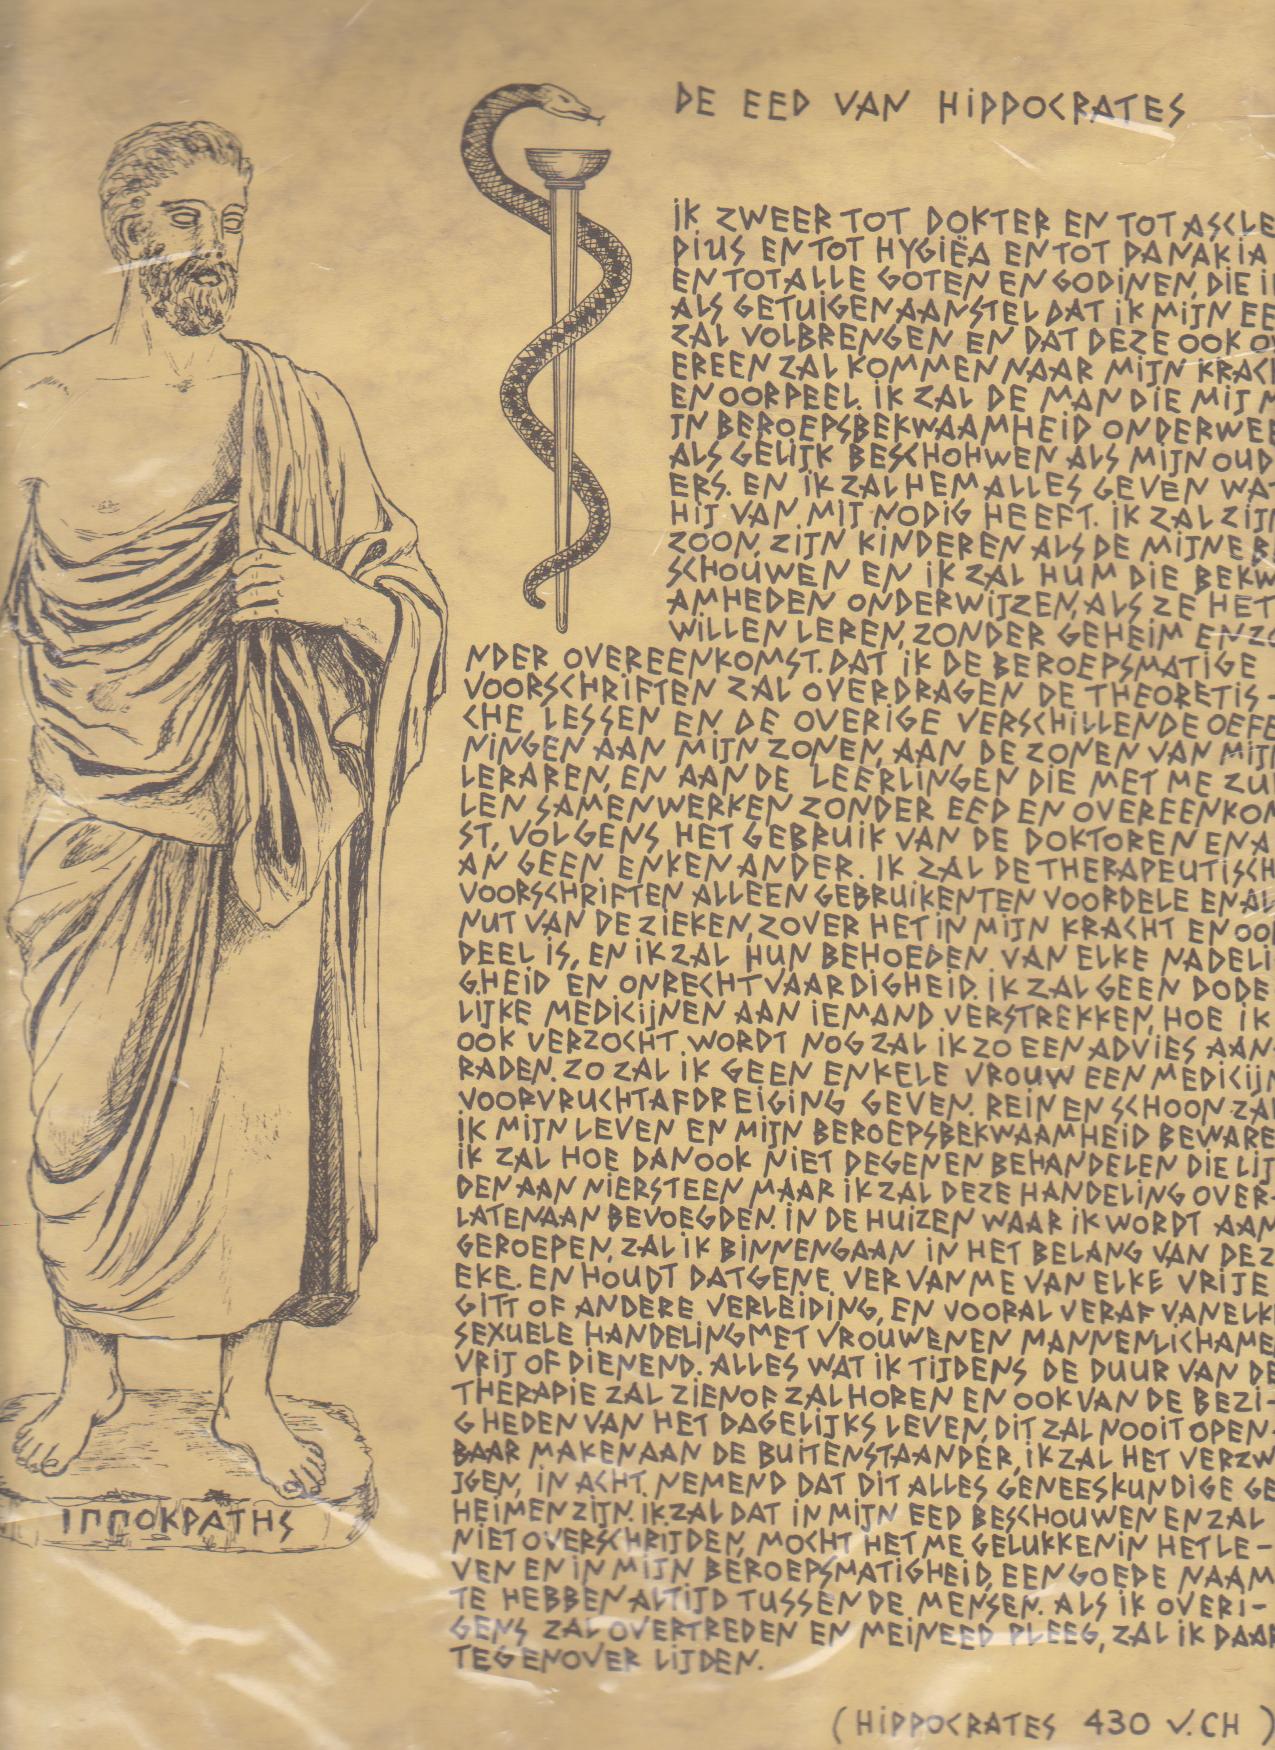 DE EED VAN HIPPOCRATES
IK ZWEER TOT DOKTER EN TOT ASCLE
PIUS EN TOT HYGIËA EN TOT PANAKIA
EN TOT ALLE GOTEN EN GODINEN, DIE I
ALS GETUIGEN AANSTEL DAT IK MIJN EE
ZAL VOLBRENGEN EN DAT DEZE OOK OV
EREEN ZAL KOMMEN NAAR MIJN KRACH
EN OORPEEL. IK ZAL DE MAN DIE MIJ M
JN BEROEPSBEKWAAMHEID ONDERWEE
ALS GELIJK BESCHOHWEN ALS MIJN OUD
ERS. EN IK ZAL HEM ALLES GEVEN WAT
HIJ VAN MIJ NODIG HEEFT. IK ZAL ZIJN
ZOON, ZIJN KINDEREN ALS DE MIJNE B
SCHOUWEN EN IK ZAL HUM DIE BEKW
AMHEDEN ONDERWIJZEN, ALS ZE HET
WILLEN LEREN, ZONDER GEHEIM EN ZO
NDER OVEREENKOMST. DAT IK DE BEROEPSMATIGE
VOORSCHRIFTEN ZAL OVERDRAGEN DE THEORETIS-
CHE LESSEN EN DE OVERIGE VERSCHILLENDE OEFE
NINGEN AAN MIJN ZONEN, AAN DE ZONEN VAN MIJN
LERAREN, EN AAN DE LEERLINGEN DIE MET ME ZUL
LEN SAMENWERKEN ZONDER EED EN OVEREENKOM
ST, VOLGENS HET GEBRUIK VAN DE DOKTOREN EN A
AN GEEN ENKEN ANDER. IK ZAL DE THERAPEUTISCH
VOORSCHRIFTEN ALLEEN GEBRUIKEN TEN VOORDELE EN AL
NUT VAN DE ZIEKEN, ZOVER HET IN MIJN KRACHT EN OOR
DEEL IS, EN IK ZAL HUN BEHOEDEN VAN ELKE NADELI
GHEID EN ONRECHTVAARDIGHEID. IK ZAL GEEN DODE
LIJKE MEDICIJNEN AAN IEMAND VERSTREKKEN, HOE IK
OOK VERZOCHT WORDT NOG ZAL IK ZO EEN ADVIES AAN-
RADEN. ZO ZAL IK GEEN ENKELE VROUW EEN MEDICIJN
VOOR VRUCHTAFDREIGING GEVEN. REIN EN SCHOON ZAL
IK MIJN LEVEN EN MIJN BEROEPSBEKWAAMHEID BEWARE
IK ZAL HOE DAN OOK NIET DEGENEN BEHANDELEN DIE LIJ
DEN AAN NIERSTEEN MAAR IK ZAL DEZE HANDELING OVER-
LATEN AAN BEVOEGDEN. IN DE HUIZEN WAAR IK WORDT AAN
GEROEPEN, ZAL IK BINNENGAAN IN HET BELANG VAN DE Z
EKE. EN HOUDT DATGENE VER VAN ME VAN ELKE VRIJE
GITT OF ANDERE VERLEIDING, EN VOORAL VERAF VAN ELK
SEXUELE HANDELING MET VROUWEN EN MANNENLICHAME
VRIJ OF DIENEND. ALLES WAT IK TIJDENS DE DUUR VAN DE
THERAPIE ZAL ZIEN OF ZAL HOREN EN OOK VAN DE BEZI-
GHEDEN VAN HET DAGELIJKS LEVEN, DIT ZAL NOOIT OPEN-
BAAR MAKEN AAN DE BUITENSTAANDER, IK ZAL HET VERZW
IJGEN, IN ACHT NEMEND DAT DIT ALLES GENEESKUNDIGE GE
HEIMEN ZIJN. IK ZAL DAT IN MIJN EED BESCHOUWEN EN ZAL
NIET OVERSCHRIJDEN, MOCHT HET ME GELUKKEN IN HET LE-
VEN EN IN MIJN BEROEPSMATIGHEID, EEN GOEDE NAAM
TE HEBBEN ALTIJD TUSSEN DE MENSEN. ALS IK OVERI-
GENS ZAL OVERTREDEN EN MEINEED PLEEG, ZAL IK DAAR
TEGENOVER LIJDEN.
(HIPPOCRATES 430 V.CH)
ΙΠΠΟΚΡΑΤΗΣ